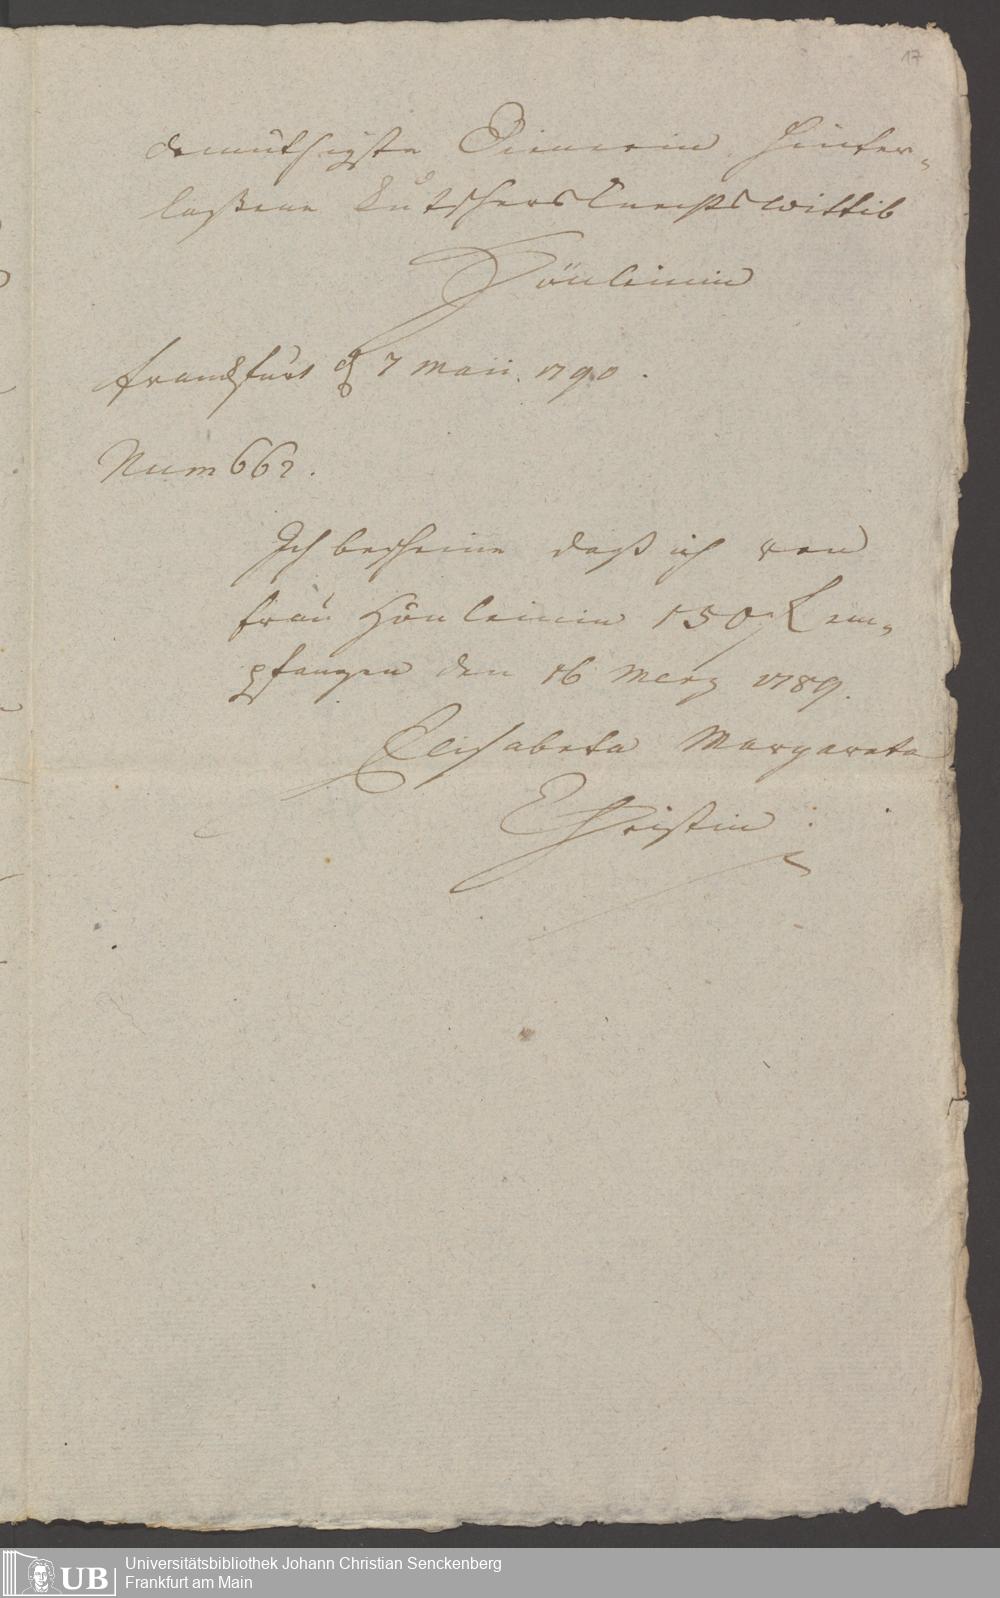 17
demüthigste Dienerin hinter-
laßene Kutschersknechtswittib
Hönleinin
franckfurt d 7 Maii. 1790.
Num 662.
Ich bescheine daß ich von
frau Hönleinin 150 f em-
pfangen den 16 Merz 1789.
Elisabeta Margareta
Christin
UB
Universitätsbibliothek Johann Christian Senckenberg
Frankfurt am Main